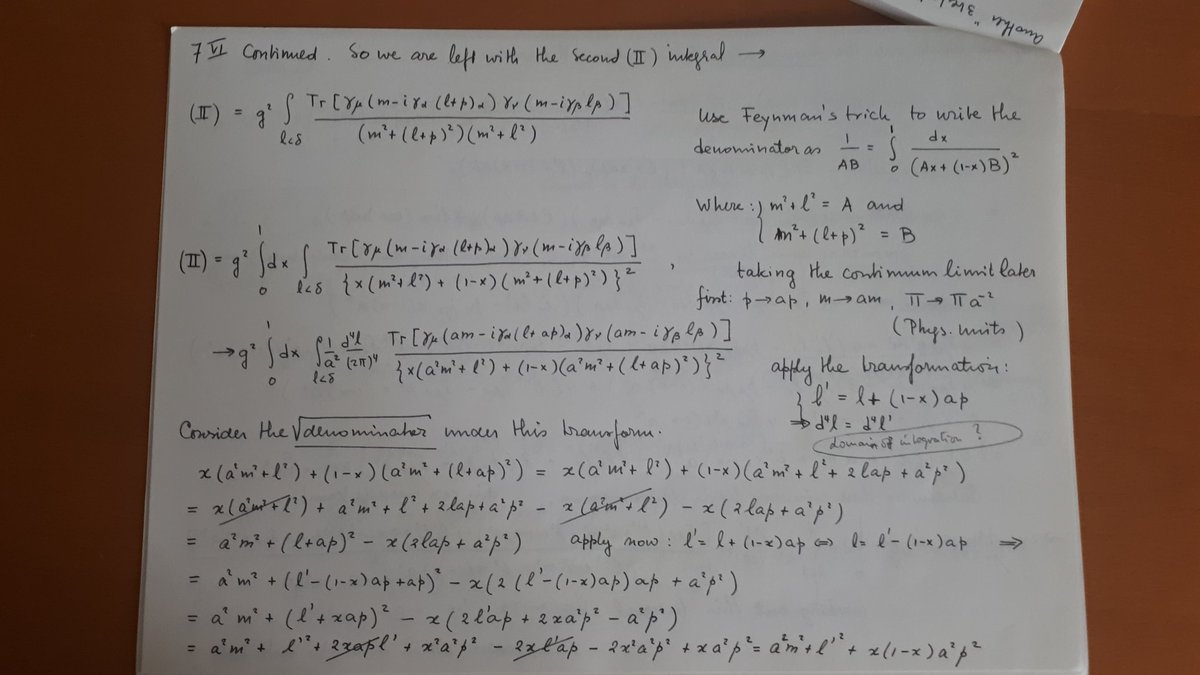 another "
7 VI Continued. So we are left with the second (II) integral →
(II) = g² ∫_{l<δ} Tr[γμ(m-iγα(l+p)α)γν(m-iγβlβ)] / (m²+(l+p)²)(m²+l²)
Use Feynman's trick to write the
denominator as 1/AB = ∫₀¹ dx/(Ax+(1-x)B)²
Where: { m²+l² = A and
m²+(l+p)² = B
(II) = g² ∫₀¹dx ∫_{l<δ} Tr[γμ(m-iγα(l+p)α)γν(m-iγβlβ)] / {x(m²+l²) + (1-x)(m²+(l+p)²)}² ,
taking the continuum limit later
first: p→ap, m→am, Π→Πa⁻²
(Phys. units)
→g² ∫₀¹dx ∫_{l<δ} 1/a² d⁴l/(2π)⁴ Tr[γμ(am-iγα(l+ap)α)γν(am-iγβlβ)] / {x(a²m²+l²) + (1-x)(a²m²+(l+ap)²)}²
apply the transformation:
{ l' = l+(1-x)ap
⇒ d⁴l = d⁴l'
domain of integration?
Consider the √denominator under this transform.
x(a²m²+l²) + (1-x)(a²m²+(l+ap)²) = x(a²m²+l²) + (1-x)(a²m²+l²+2lap+a²p²)
= x(a²m²+l²) + a²m²+l²+2lap+a²p² - x(a²m²+l²) - x(2lap+a²p²)
= a²m²+(l+ap)² - x(2lap+a²p²) apply now: l'=l+(1-x)ap ⇔ l=l'-(1-x)ap ⇒
= a²m² + (l'-(1-x)ap+ap)² - x(2(l'-(1-x)ap)ap + a²p²)
= a²m² + (l'+xap)² - x(2l'ap + 2xa²p² - a²p²)
= a²m² + l'² + 2xapl' + x²a²p² - 2xl'ap - 2x²a²p² + xa²p² = a²m²+l'² + x(1-x)a²p²